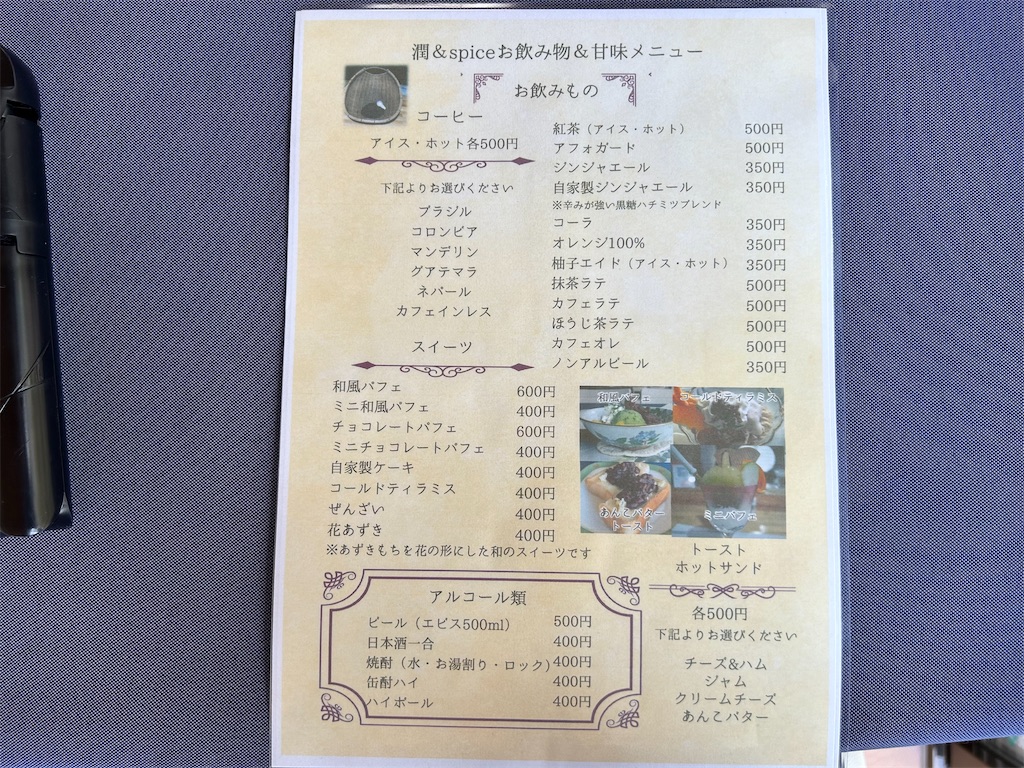 潤&spiceお飲み物&甘味メニュー
お飲みもの
コーヒー
アイス・ホット各500円
下記よりお選びください
ブラジル
コロンビア
マンデリン
グアテマラ
ネパール
カフェインレス
紅茶（アイス・ホット） 500円
アフォガード 500円
ジンジャエール 350円
自家製ジンジャエール 350円
※辛みが強い黒糖ハチミツブレンド
コーラ 350円
オレンジ100% 350円
柚子エイド（アイス・ホット） 350円
抹茶ラテ 500円
カフェラテ 500円
ほうじ茶ラテ 500円
カフェオレ 500円
ノンアルビール 350円
スイーツ
和風パフェ 600円
ミニ和風パフェ 400円
チョコレートパフェ 600円
ミニチョコレートパフェ 400円
自家製ケーキ 400円
コールドティラミス 400円
ぜんざい 400円
花あずき 400円
※あずきもちを花の形にした和のスイーツです
和風パフェ
コールドティラミス
あんこバター
トースト
ミニパフェ
トースト
ホットサンド
各500円
下記よりお選びください
チーズ&ハム
ジャム
クリームチーズ
あんこバター
アルコール類
ビール（エビス500ml） 500円
日本酒一合 400円
焼酎（水・お湯割り・ロック） 400円
缶酎ハイ 400円
ハイボール 400円